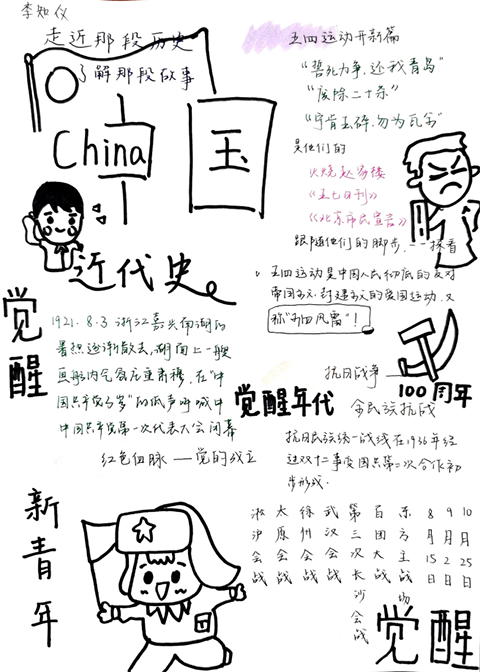 李知仪
走近那段历史
了解那段故事
中
China
国
近代史
觉醒
1921.8.3 浙江嘉兴南湖的
暑热逐渐散去,湖面上一艘
画舫内气氛庄重肃穆,在“中
国共产党万岁”的低声呼喊中
中国共产党第一次代表大会闭幕
红色血脉——党的成立
新青年
五四运动开新篇
“誓死力争,还我青岛”
“废除二十条”
“宁肯玉碎,勿为瓦全”
是他们的
火烧赵家楼
《五七日刊》
《北京市民宣言》
跟随他们的脚步,一探看
五四运动是中国人民彻底的反对
帝国主义、封建主义的爱国运动,又
称“五四风雷”!
100周年
抗日战争——
觉醒年代
全民族抗战
抗日民族统一战线在1936年经
过双十二事变国共第二次合作初
步形成.
淞沪会战
太原会战
徐州会战
武汉会战
第三次长沙会战
百团大战
东方主战场
8月15日
9月2日
10月25日
觉醒